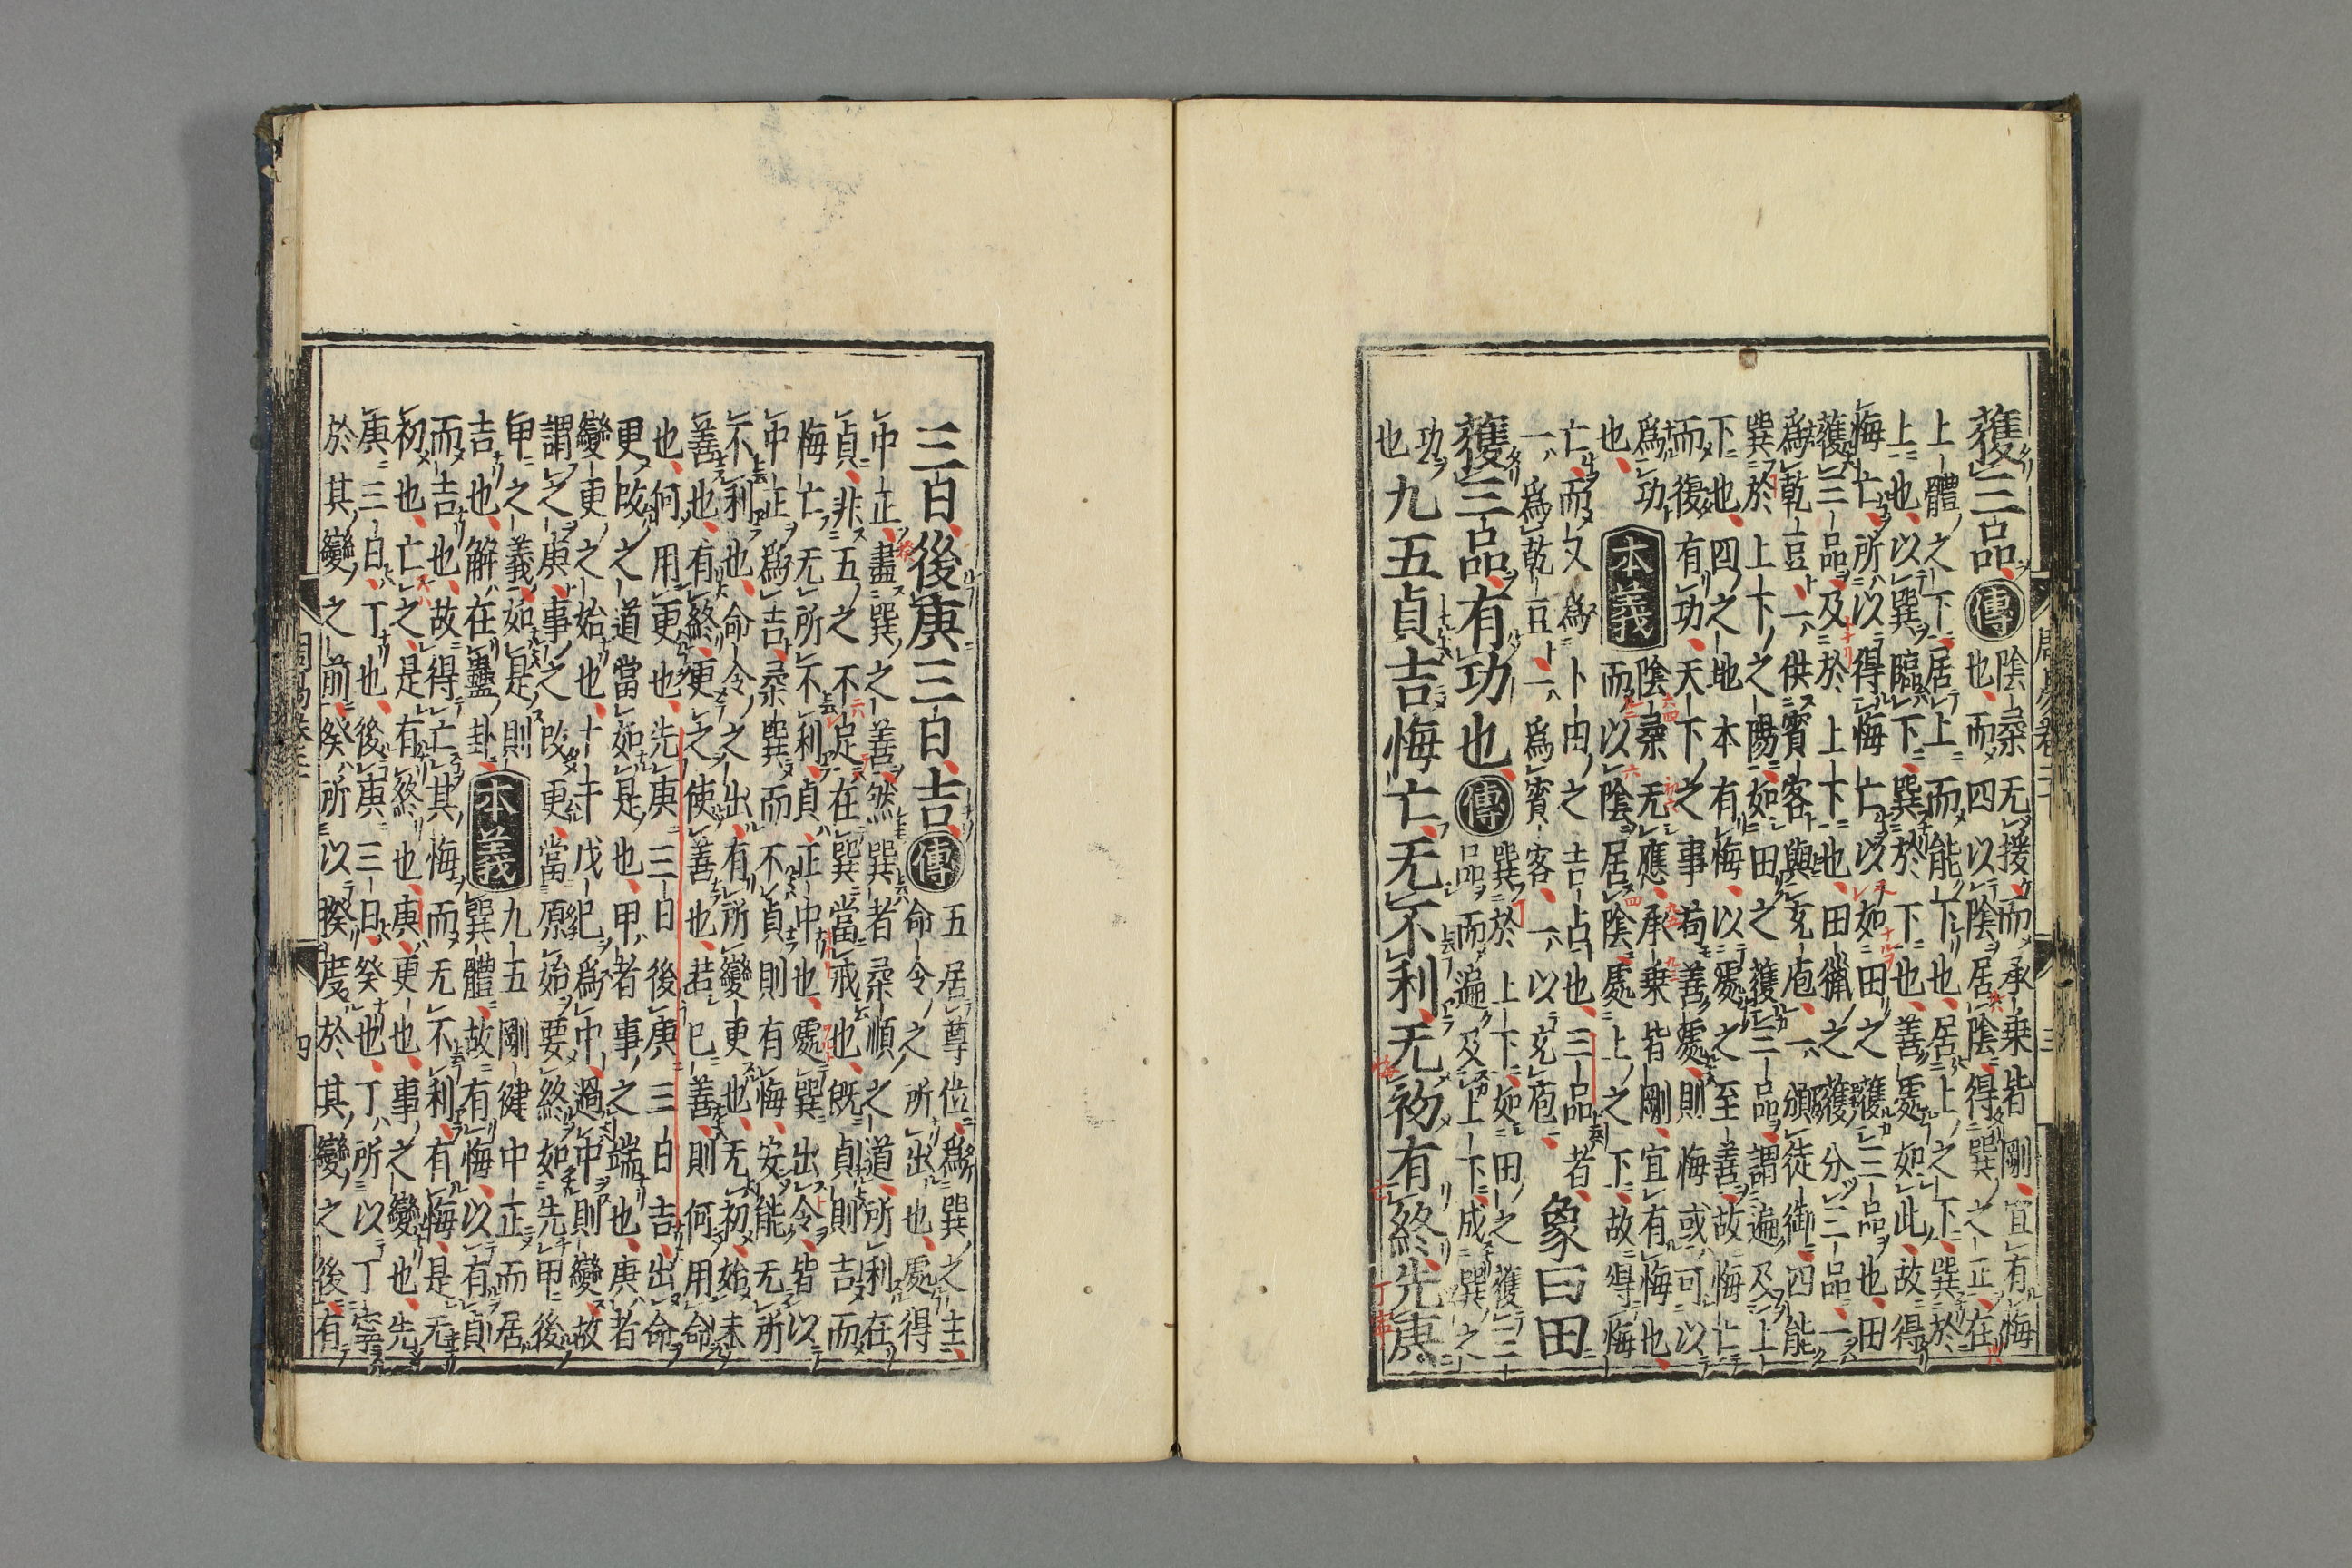 獲三品傳陰柔无援而承乘皆剛宜有悔
也而四以陰居陰得巽之正在
上體之下居上而能下也居上之下巽於
上也以巽臨下巽於下也善處如此故得
悔亡所以得悔亡以如田之獲三品也田
獲三品及於上下也田獵之獲分三品一
爲乾豆一供賓客與充庖一頒徒御四能
巽於上下之陽如田之獲三品謂遍及上
下也四之地本有悔以處之至善故悔亡
而復有功天下之事苟善處則悔或可以
爲功
也
本義陰柔无應承乘皆剛宜有悔也
而以陰居陰處上之下故得悔
亡而又爲卜田之吉占也三品者
一爲乾豆一爲賓客一以充庖
象曰田
獲三品有功也傳巽於上下如田之獲三
品而遍及上下成巽之
功
也
九五貞吉悔亡无不利无初有終先庚
三日後庚三日吉傳五居尊位爲巽之主
命令之所出也處得
中正盡巽之善然巽者柔順之道所利在
貞非五之不足在巽當戒也既貞則吉而
悔亡无所不利貞正中也處巽出令皆以
中正爲吉柔巽而不貞則有悔安能无所
不利也命令之出有所變更也无初始未
善也有終更之使善也若已善則何用命
也何用更也先庚三日後庚三日吉出命
更改之道當如是也甲者事之端也庚者
變更之始也十干戊己爲中過中則變故
謂之庚事之改更當原始要終如先甲後
甲之義如是則
吉也解在蠱卦
本義九五剛健中正而居
巽體故有悔以有貞
而吉也故得亡其悔而无不利有悔是无
初也亡之是有終也庚更也事之變也先
庚三日丁也後庚三日癸也丁所以丁寧
於其變之前癸所以揆度於其變之後有